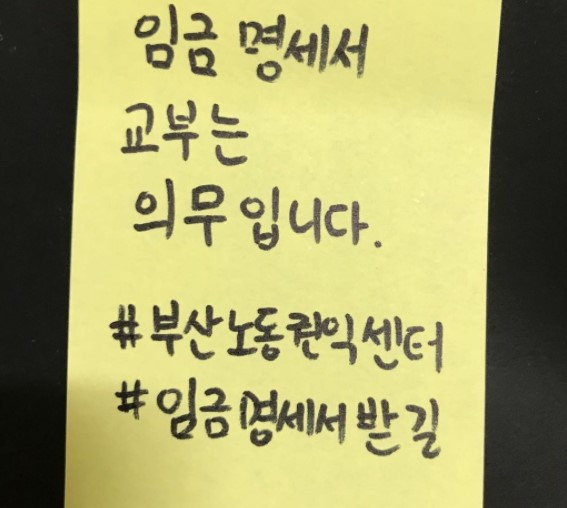 임금 명세서
교부는
의무입니다.
#부산노동권익센터
#임금명세서받길